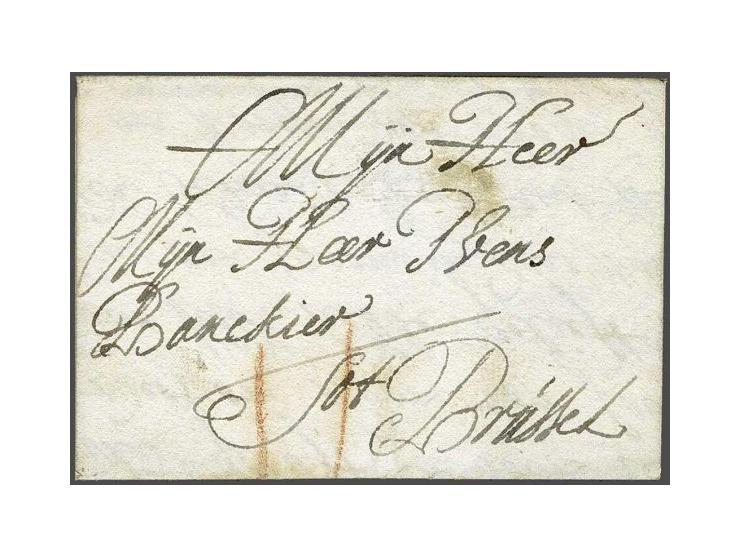 Mijn Heer
Mijn Heer
Banckier
Tot Brüssel